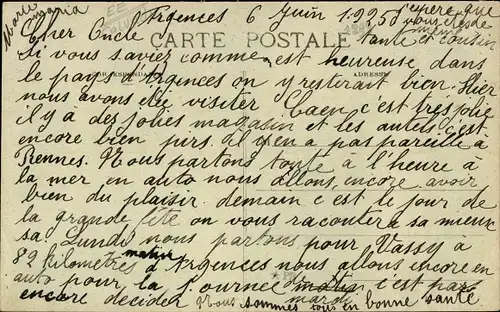 Argences 6 Juin 1925
j'espere que vous etes de même
Marie
Cher Oncle
tante et cousin
CARTE POSTALE
Si vous saviez comme on est heureuse dans
CORRESPONDANCE
ADRESSE
le pays d'Argences on y resterait bien. Hier
nous avons étée visiter Caen c'est tres jolie
il y a des jolies magasin et les autels c'est
encore bien pirs. il y en a pas pareille a
Rennes. Nous partons toute à l'heure à
la mer en auto nous allons encore avoir
bien du plaisir. demain c'est le jour de
la grande fête on vous racontera sa mieux
sa. Lundi nous partons pour Vassy à
89 kilometres d'Argences nous allons encore en
matin
auto pour la tournee c'est pas
mardi
encore decider Nous sommes tous en bonne santé